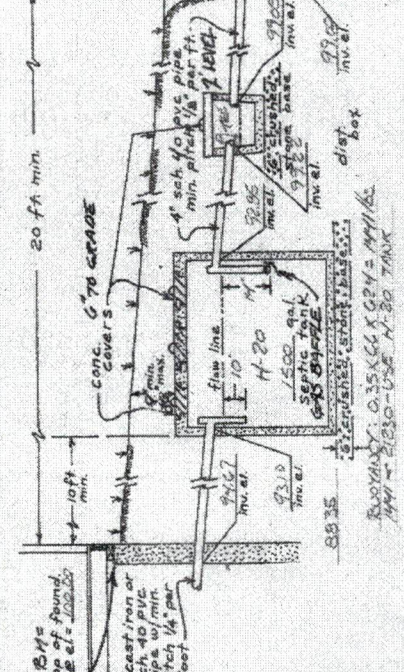 20 ft min.
10 ft
min.
conc.
covers
6" TO GRADE
min.
max.
4" sch. 40 pvc pipe
min. pitch 1/8" per ft.
LEVEL
99.05
inv. el.
inv. el.
6" crushed
stone base
inv. el.
dist.
box
inv. el.
flow line
10"
14"
H-20
1500 gal
septic tank
GAS BAFFLE
6" crushed stone base
94.67
inv. el.
93.10
inv. el.
88.35
BUOYANCY: 0.35 X 66 X 62.4 = 1441 lbs.
USE H-20 TANK
BM=
top of found.
el = 100.00
cast iron or
sch. 40 pvc
pipe w/ min.
pitch 1/4" per
foot